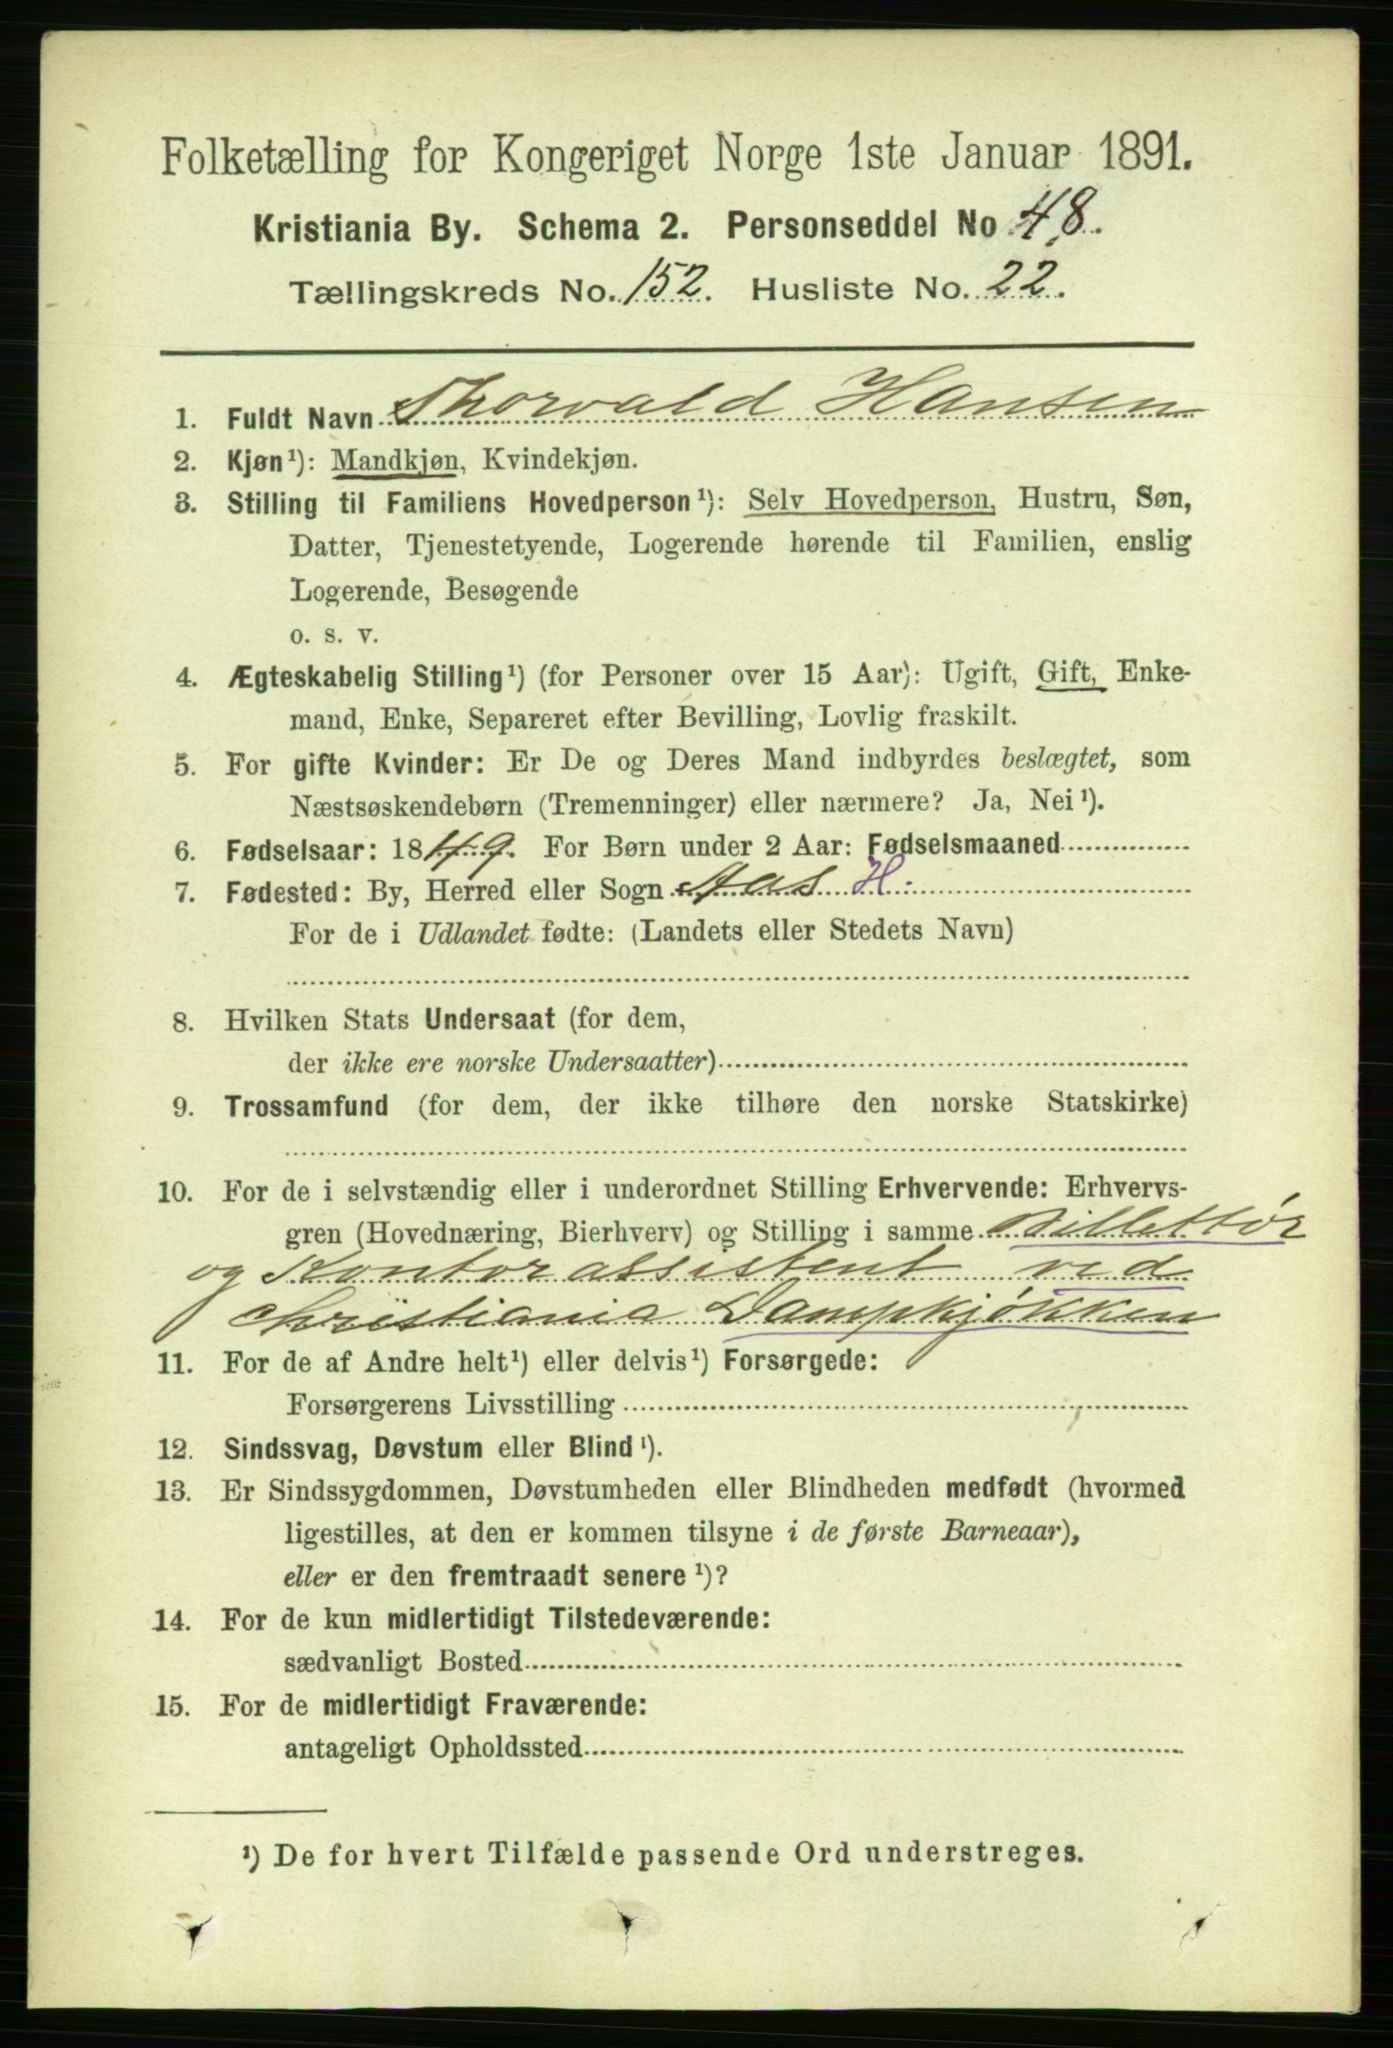 Folketælling for Kongeriget Norge 1ste Januar 1891.
Kristiania By. Schema 2. Personseddel No 48.
Tællingskreds No. 152. Husliste No. 22.
1. Fuldt Navn Thorvald Hansen
2. Kjøn¹): Mandkjøn, Kvindekjøn.
3. Stilling til Familiens Hovedperson¹): Selv Hovedperson, Hustru, Søn,
Datter, Tjenestetyende, Logerende hørende til Familien, enslig
Logerende, Besøgende
o. s. v.
4. Ægteskabelig Stilling¹) (for Personer over 15 Aar): Ugift, Gift, Enke-
mand, Enke, Separeret efter Bevilling, Lovlig fraskilt.
5. For gifte Kvinder: Er De og Deres Mand indbyrdes beslægtet, som
Næstsøskendebørn (Tremenninger) eller nærmere? Ja, Nei¹).
6. Fødselsaar: 1849. For Børn under 2 Aar: Fødselsmaaned
7. Fødested: By, Herred eller Sogn Aas H.
For de i Udlandet fødte: (Landets eller Stedets Navn)
8. Hvilken Stats Undersaat (for dem,
der ikke ere norske Undersaatter)
9. Trossamfund (for dem, der ikke tilhøre den norske Statskirke)
10. For de i selvstændig eller i underordnet Stilling Erhvervende: Erhvervs-
gren (Hovednæring, Bierhverv) og Stilling i samme Billettør
og Kontorassistent ved
Christiania Dampkjøkken
11. For de af Andre helt¹) eller delvis¹) Forsørgede:
Forsørgerens Livsstilling
12. Sindssvag, Døvstum eller Blind¹).
13. Er Sindssygdommen, Døvstumheden eller Blindheden medfødt (hvormed
ligestilles, at den er kommen tilsyne i de første Barneaar),
eller er den fremtraadt senere¹)?
14. For de kun midlertidigt Tilstedeværende:
sædvanligt Bosted
15. For de midlertidigt Fraværende:
antageligt Opholdssted
¹) De for hvert Tilfælde passende Ord understreges.